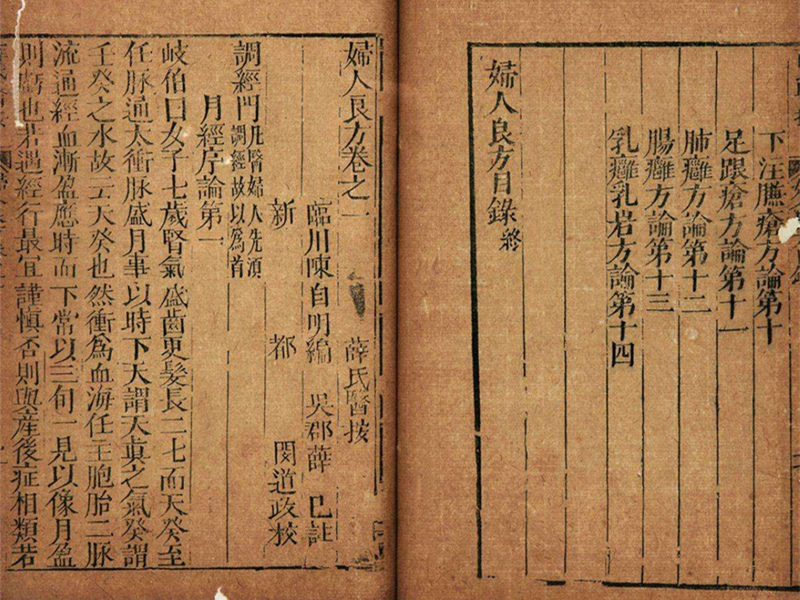 下注臁瘡方論第十
足跟瘡方論第十一
肺癰方論第十二
腸癰方論第十三
乳癰乳岩方論第十四
婦人良方目錄終
婦人良方卷之一 薛氏醫按
臨川陳自明編 吳郡薛己註
新都 閔道政校
調經門凡醫婦人先須調經故以爲首
月經序論第一
岐伯曰女子七歲腎氣盛齒更髮長二七而天癸至
任脉通太衝脉盛月事以時下天謂天真之氣癸謂
壬癸之水故云天癸也然衝爲血海任主胞胎二脉
流通經血漸盈應時而下常以三旬一見以像月盈
則虧也若遇經行最宜謹慎否則與產後症相類若